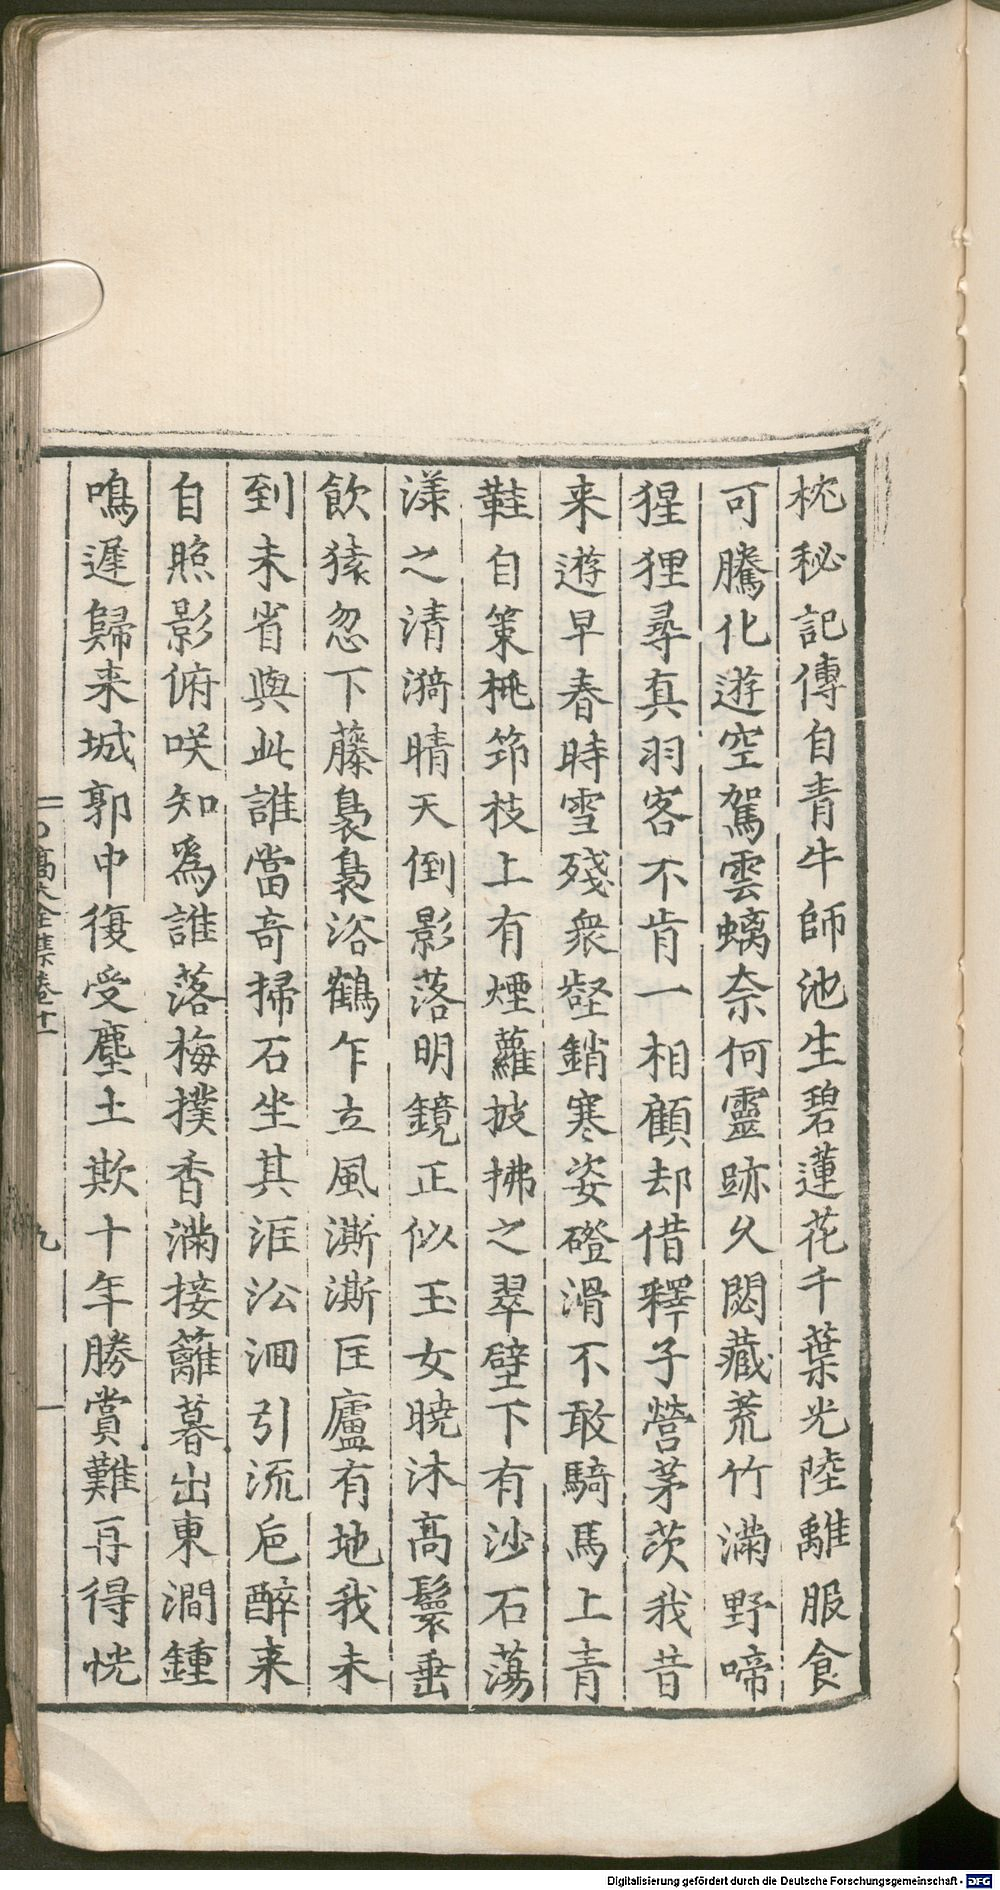 枕秘記傳自青牛師池生碧蓮花千葉光陸離服食
可騰化遊空駕雲螭奈何靈跡久閟藏荒竹滿野啼
猩狸尋真羽客不肯一相顧却借釋子營茅茨我昔
来遊早春時雪殘衆壑銷寒姿磴滑不敢騎馬上青
鞋自策桃筇枝上有煙蘿披拂之翠壁下有沙石蕩
漾之清漪晴天倒影落明鏡正似玉女曉沐高鬟垂
飲猿忽下藤裊裊浴鶴乍立風澌澌匡廬有地我未
到未省與此誰當奇掃石坐其涯沿洄引流卮醉来
自照影俯咲知爲誰落梅撲香滿接䍦暮出東澗鍾
鳴遲歸来城郭中復受塵土欺十年勝賞難再得恍
高大全集卷十一
九
Digitalisierung gefördert durch die Deutsche Forschungsgemeinschaft - DFG